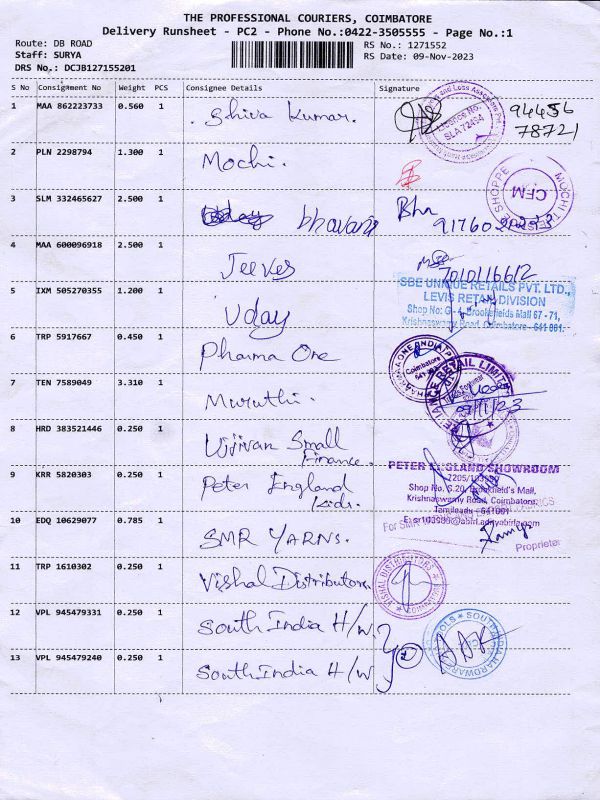 THE PROFESSIONAL COURIERS, COIMBATORE
Delivery Runsheet - PC2 - Phone No.:0422-3505555 - Page No.:1
Route: DB ROAD
Staff: SURYA
DRS No.: DCJB127155201
RS No.: 1271552
RS Date: 09-Nov-2023
S No Consignment No Weight PCS Consignee Details Signature
1 MAA 862223733 0.560 1 Shiva Kumar. 94456
78721
SLA 72454
2 PLN 2298794 1.300 1 Mochi.
CFM
3 SLM 332465627 2.500 1 bhavani Bhu
4 MAA 600096918 2.500 1 Jeeves 7010116612
SBE UNIQUE RETAILS PVT. LTD.,
LEVIS RETAIL DIVISION
Shop No: G-4, Brookefields Mall 67 - 71,
Krishnaswamy Road, Coimbatore - 641 001.
5 IXM 505270355 1.200 1 Uday
6 TRP 5917667 0.450 1 Pharma One
Coimbatore
7 TEN 7589049 3.310 1 Muruthi.
09/11/23
8 HRD 383521446 0.250 1 Ujjivan Small
Finance.
9 KRR 5820303 0.250 1 Peter England
Kids.
PETER ENGLAND SHOWROOM
Shop No, S.20, Brookfield's Mall,
Krishnaswamy Road, Coimbatore,
Tamilnadu - 641001
10 EDQ 10629077 0.785 1 SMR YARNS.
Proprietor
11 TRP 1610302 0.250 1 Vishal Distributors
VISHAL DISTRIBUTORS
12 VPL 945479331 0.250 1 South India H/W
13 VPL 945479240 0.250 1 South India H/W 2